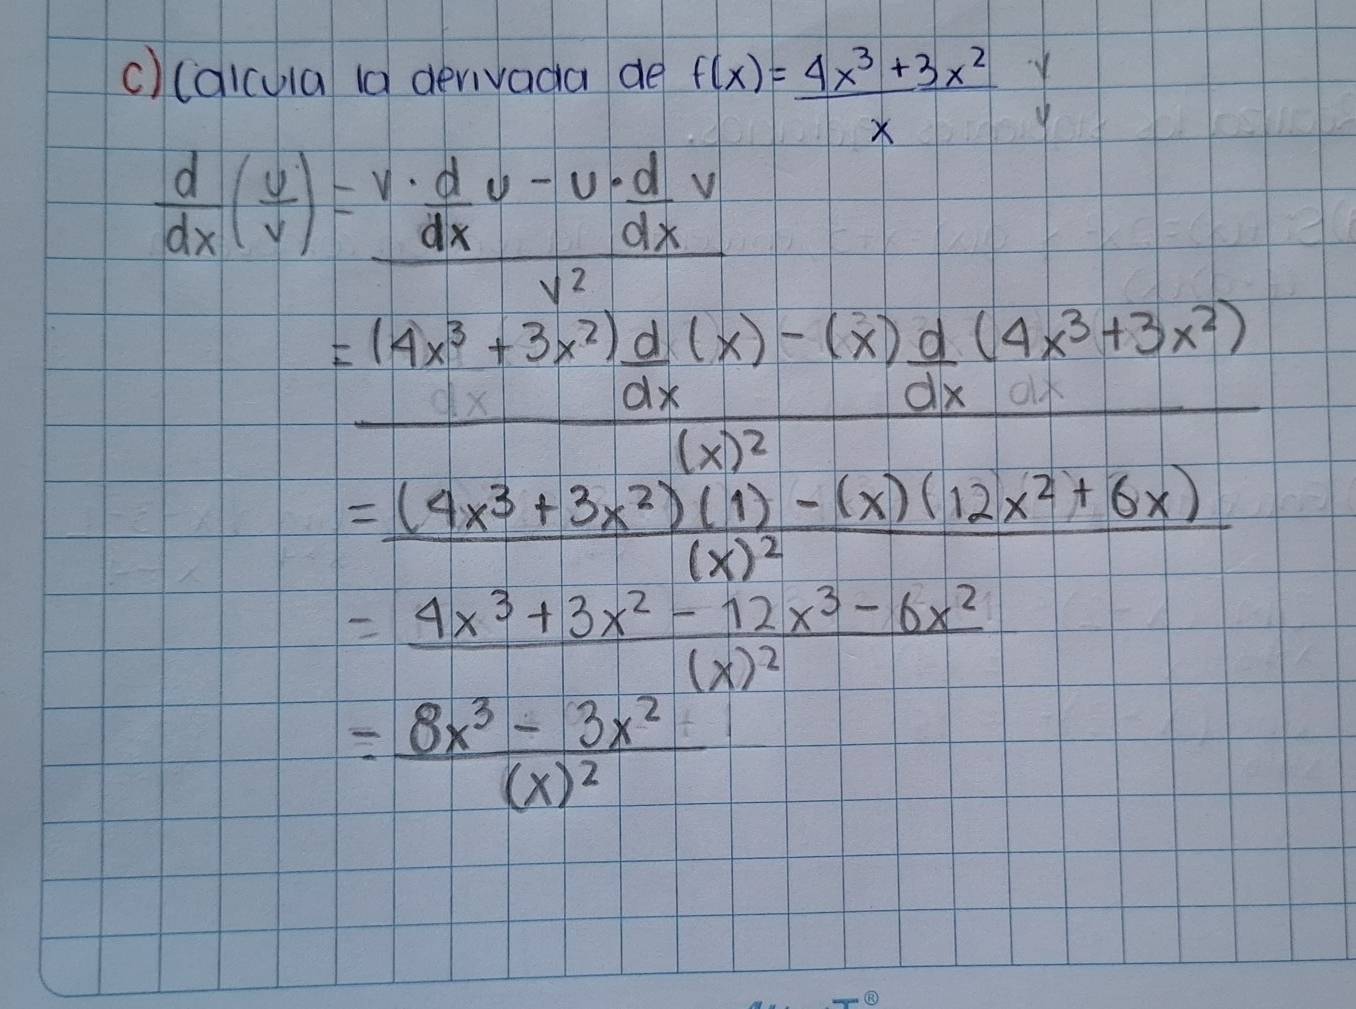 c) Calcula la derivada de f(x) = (4x³ + 3x²)/x
d/dx (u/v) = (v · d/dx u - u · d/dx v)/v²
= ((4x³ + 3x²) d/dx (x) - (x) d/dx (4x³ + 3x²))/(x)²
= ((4x³ + 3x²)(1) - (x)(12x² + 6x))/(x)²
= (4x³ + 3x² - 12x³ - 6x²)/(x)²
= (8x³ - 3x²)/(x)²